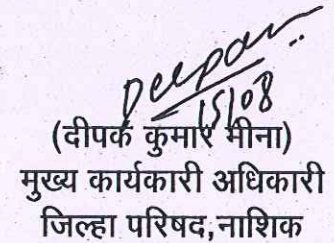 Deepak
15/08
(दीपक कुमार मीना)
मुख्य कार्यकारी अधिकारी
जिल्हा परिषद,नाशिक